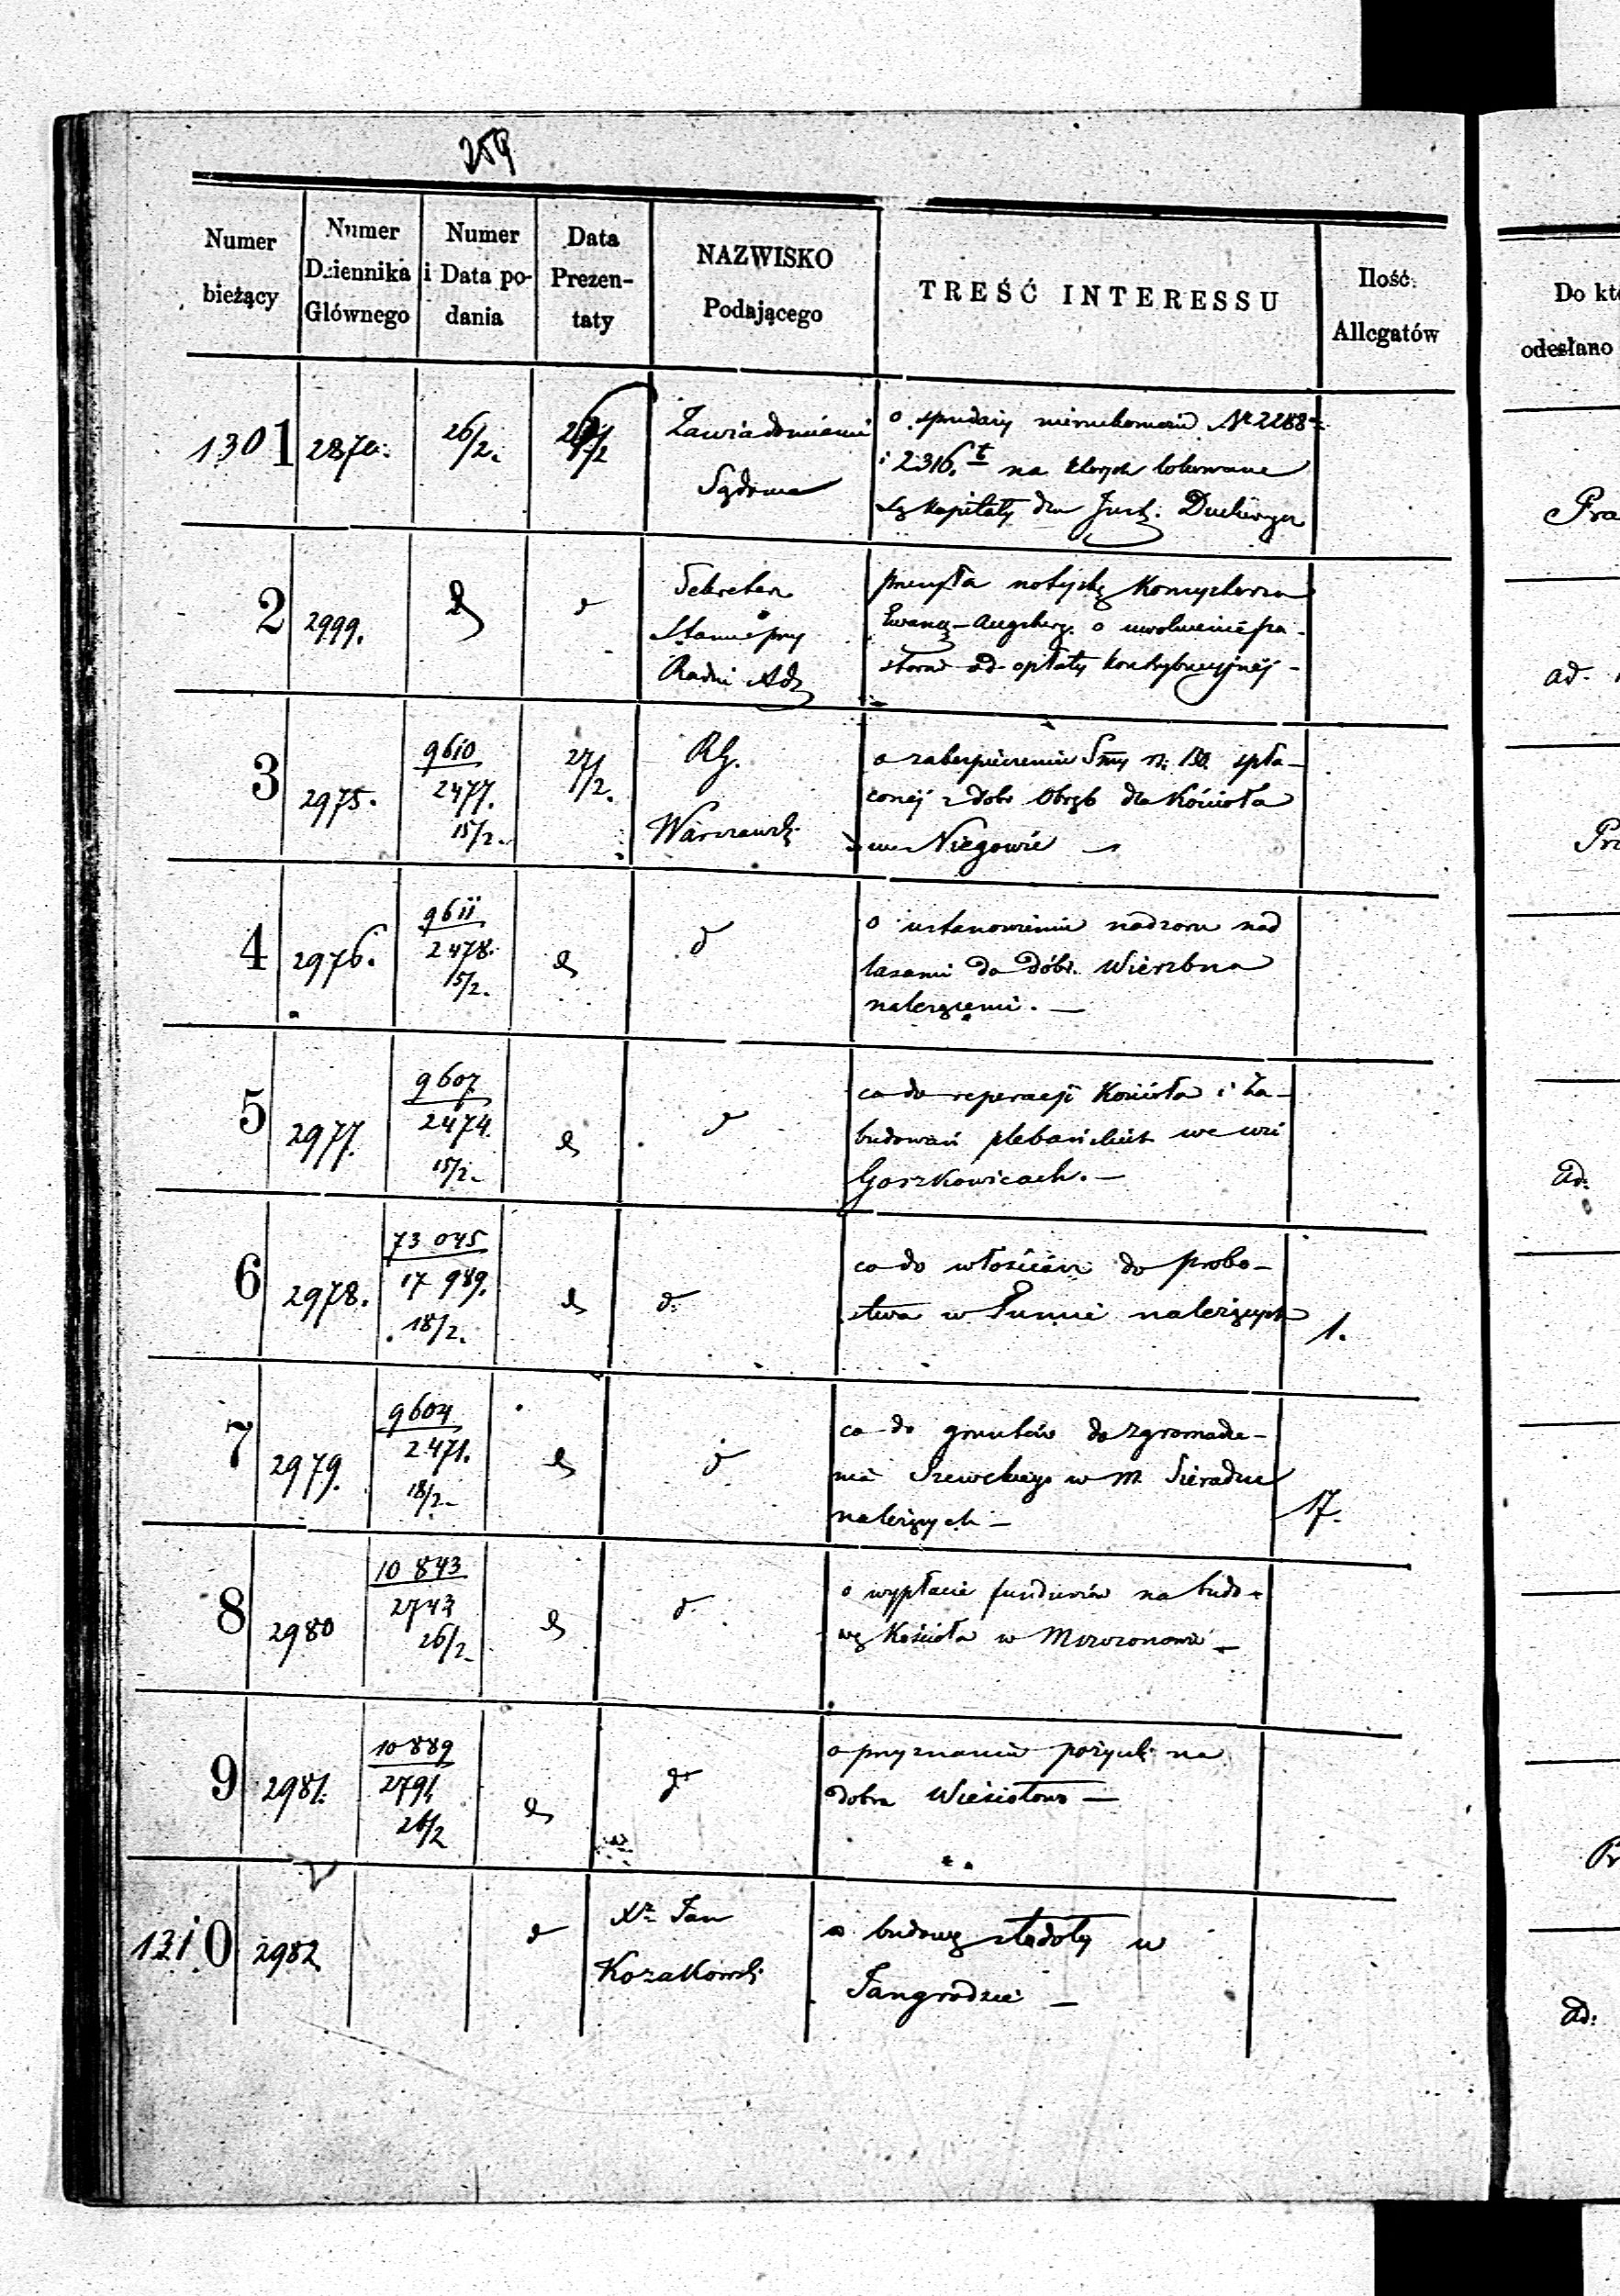 259
Numer bieżący
Numer Dziennika Głównego
Numer i Data podania
Data Prezentaty
NAZWISKO Podającego
TREŚĆ INTERESSU
Ilość Allegatów
Do kt
odesłano
1301 26/2. Zawiadomienie Sądowe
o sprzedaży nieruchomości № 2288
i 2316. na których lokowane
są kapitały dla Inst. Duchnego
Pra
2 2999. d d Sekretarz Stanu przy Radzie Adz
przesyła notyskę Konsystorza
Ewang-Augsburg. o uwolnienie pa-
storów od opłaty kontrybucyjnej -
ad.
3 2975. 9610 2477. 15/2. 27/2. RG. Warszawsk.
o zabezpieczeniu Smy rs. 150. spła-
conej z dobr Obręb dla Kościoła
we Niegowie
Prz
4 2976. 9611 2478. 15/2. d d
o ustanowieniu nadzoru nad
lasami do dóbr. Wierzbna
należącemi. —
5 2977. 9607 2474. 15/2. d d
co do reperacji Kościoła i Za-
budowań plebańskich we wsi
Gorzkowicach. —
ad:
6 2978. 73 045 17 989. 18/2. d d:
co do włościan do probo-
stwa w Tumie należących
1.
7 2979. 9604 2471. 18/2. d d
co do gruntów do zgromadze-
nia Szewckiego w m. Sieradzu
należących —
17.
8 2980 10 843 2743 26/2. d d.
o wypłacie funduszów na budo-
wę Kościoła w Mszczonowie —
9 2981. 10889 2791. 26/2 d d
o przyznanie pożyczki na
dobra Wiesiołowo —
Pr
1310 2982 d Xz Jan Kozakowski
o budowę stodoły w
Tarnogrodzie —
ad: